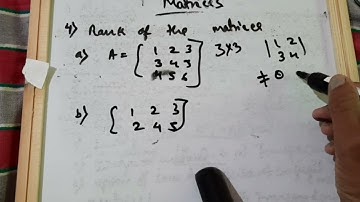 Matrices
4) Rank of the matrices
a) A = [ 1 2 3 3×3 | 1 2 |
3 4 3 3 4
4 5 6 ] ≠ 0
b) [ 1 2 3
2 4 5 ]